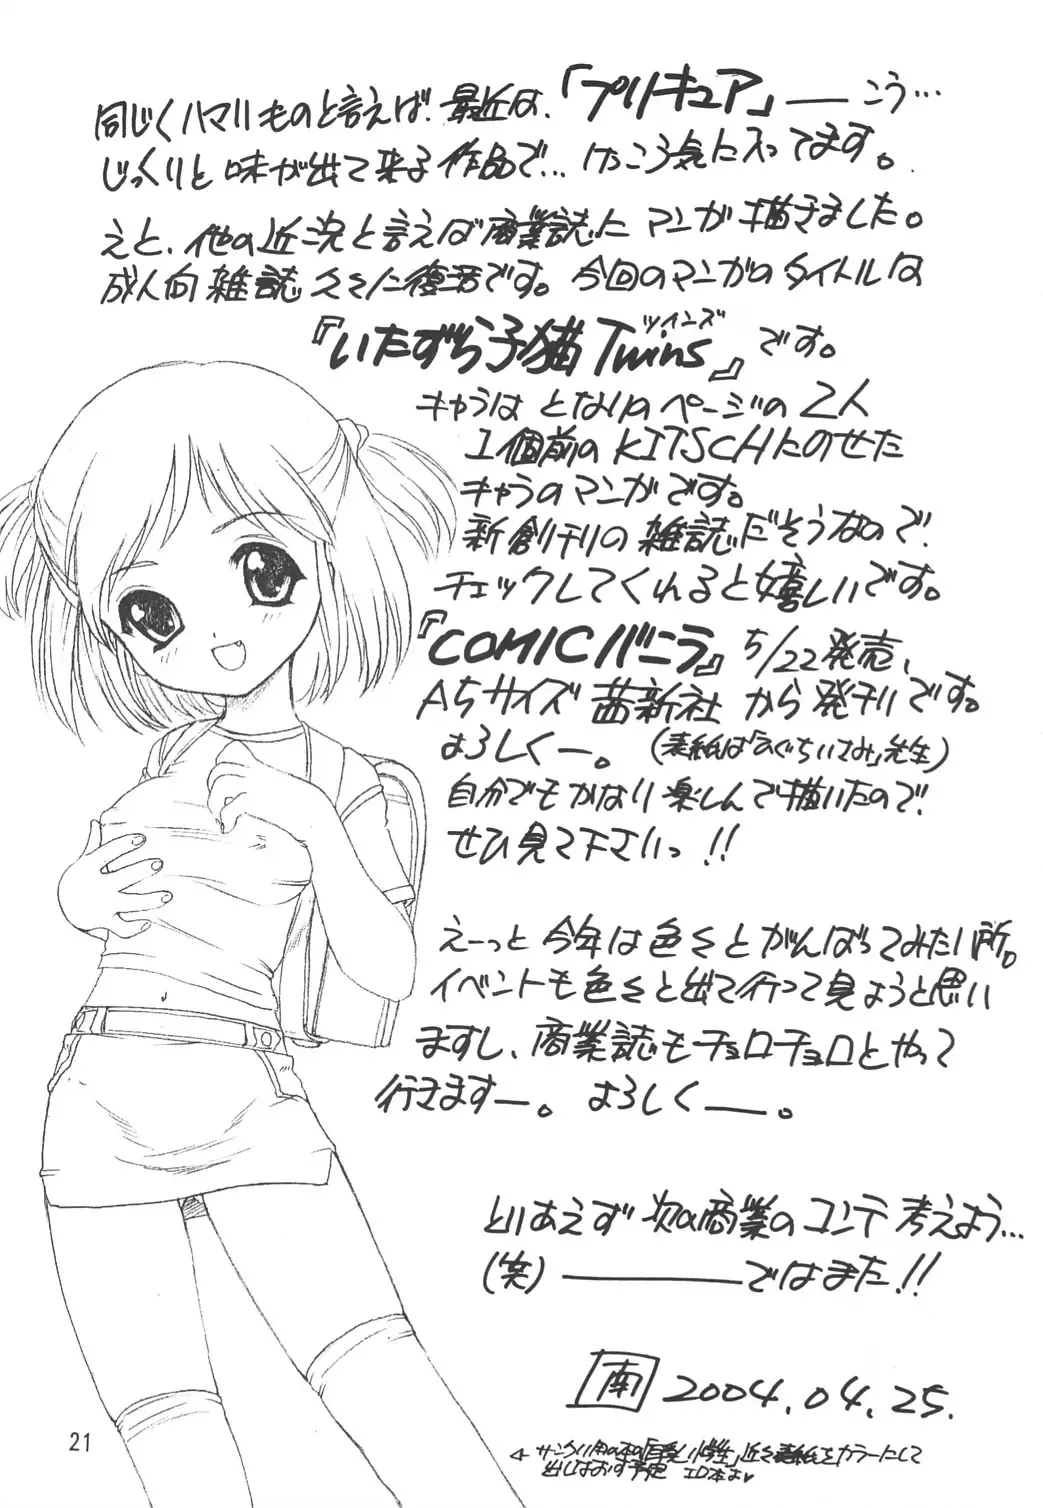 同じくハマリものと言えば、最近は、「プリキュア」――こう…
じっくりと味が出て来る作品で…けっこう気に入ってます。
えと、他の近況と言えば商業誌にマンガ描きました。
成人向雑誌久々に復活です。今回のマンガのタイトルは
ツインズ
『いたずら子猫Twins』です。
キャラはとなりのページの2人
1個前のKITSCHにのせた
キャラのマンガです。
新創刊の雑誌だそうなので
チェックしてくれると嬉しいです。
『COMICバニラ』5/22発売、
A5サイズ茜新社から発刊です。
よろしくー。(表紙は「ふぐちいさみ」先生)
自分でもかなり楽しんで描いたので
ぜひ見て下さいっ!!
えーっと今年は色々とがんばってみたい所。
イベントも色々と出て行って見ようと思い
ますし、商業誌もチョロチョロとやって
行きますー。よろしくー。
とりあえず次の商業のコンテ考えよう…
(笑)――ではまた!!
南 2004.04.25.
サンクリ用の本の 近々表紙をカラーにして
出しなおす予定
21